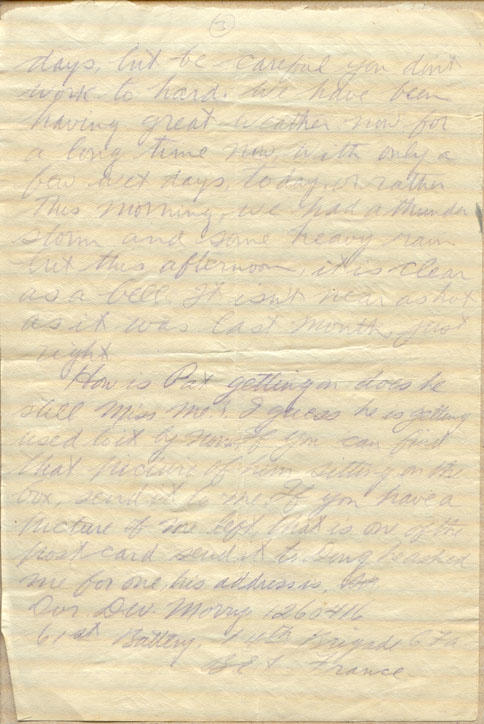 3
days, but be careful you don't
work to hard. We have been
having great weather now for
a long time now, with only a
few wet days, today, or rather
this morning, we had a thunder
storm and some heavy rain
but this afternoon, it is clear
as a bell. It isn't near as hot
as it was last month, just
right
How is Pat getting on does he
still miss me. I guess he is getting
used to it by now. If you can find
that picture of him sitting on the
box, send it to me. If you have a
picture of me left, that is one of the
post card send it to Doug he asked
me for one, his address is,
Dvr Dev. Morry 1260416
61st Battery, 14th Brigade CFA
BEF France